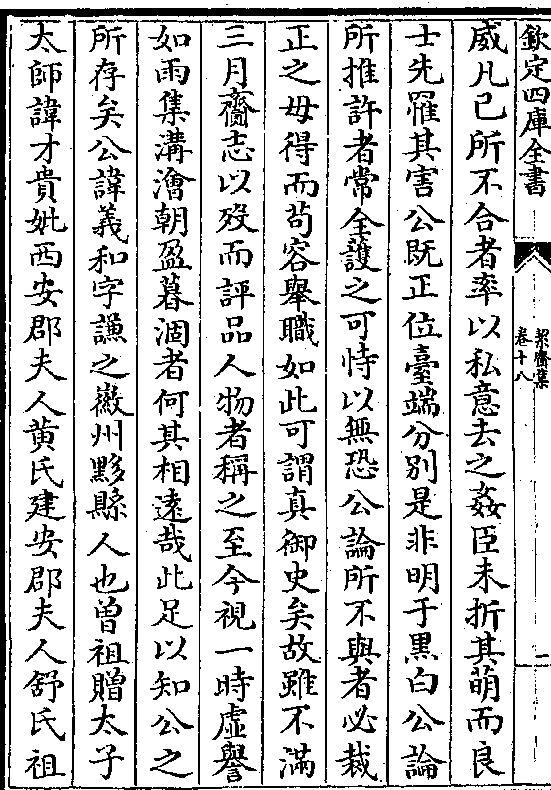 欽定四庫全書
絜齋集
卷十八
一
威凡已所不合者率以私意去之姦臣未折其萌而良
士先罹其害公既正位臺端分別是非明于黑白公論
所推許者常全護之可恃以無恐公論所不與者必裁
正之毋得而苟容舉職如此可謂真御史矣故雖不滿
三月齎志以歿而評品人物者稱之至今視一時虛譽
如雨集溝澮朝盈暮涸者何其相遠哉此足以知公之
所存矣公諱義和字謙之徽州黟縣人也曾祖贈太子
太師諱才貴妣西安郡夫人黄氏建安郡夫人舒氏祖